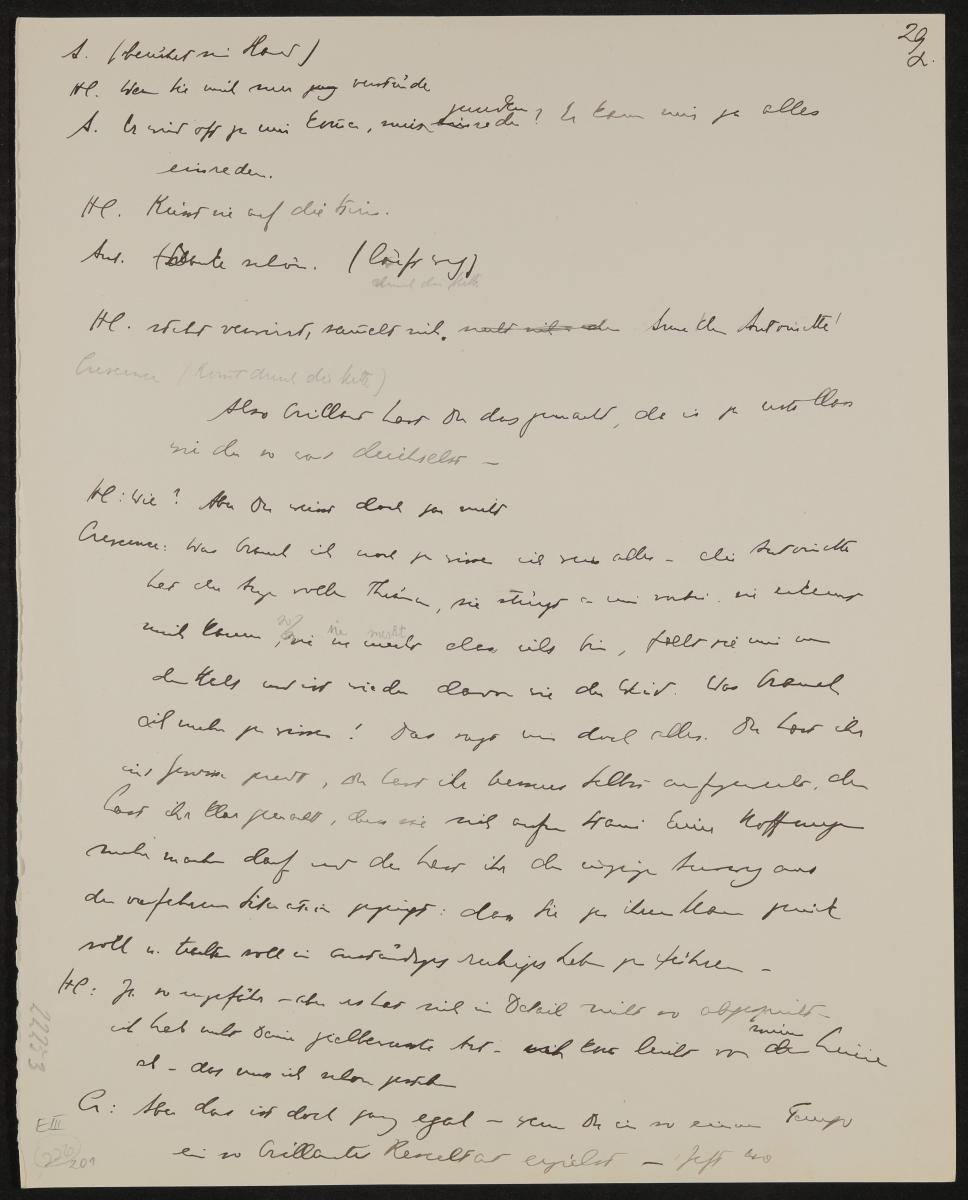 29
d.
A. (berührt sein Hand)
HC. Wenn Sie mich nur ganz verstünde
A. Er wird oft zu mir kommen, mich zureden? Er kann mir ja alles
einreden.
HC. Küsst sie auf die Stirn.
Ant. schon. (läuft weg)
durch die Mitte
HC. steht verwirrt, sammelt sich. Arme kleine Antoinette!
Crescence (kommt durch die Mitte)
Also brillant hast Du das gemacht, das ist ja erste Class
wie du so was deichselst –
HC: Wie? Aber Du weisst doch gar nicht
Crescence: Was brauch ich noch zu wissen ich weiss alles – die Antoinette
hat die Auge voller Thränen, sie stürzt an mir vorbei. sie erkennt
mich kaum, so wie sie merkt dass ichs bin, fällt sie mir um
den Hals und ist wieder davon wie der Wind. Was brauch
ich mehr zu wissen! Das sagt mir doch alles. Du hast ihr
ins Gewissen geredt, Du hast ihr besseres Selbst aufgeweckt, du
hast ihr klar gemacht, dass sie sich aufn Stani keine Hoffnungen
mehr machen darf und du hast ihr den einzige Ausweg aus
der verfahrenen Situation gezeigt: dass Sie zu ihrem Mann zurück
soll u. trachten soll ein anständiges ruhiges Leben zu führen –
HC: Ja so ungefähr – aber es hat sich im Detail nicht so abgespielt –
ich hab nicht Deine zielbewusste Art – ich komm leicht von meiner Linie
ab – das muss ich schon gestehen
Cr: Aber das ist doch ganz egal – wenn Du in so einem Tempo
ein so brillantes Resultat erzielst – Jetzt wo
22253
E III
201